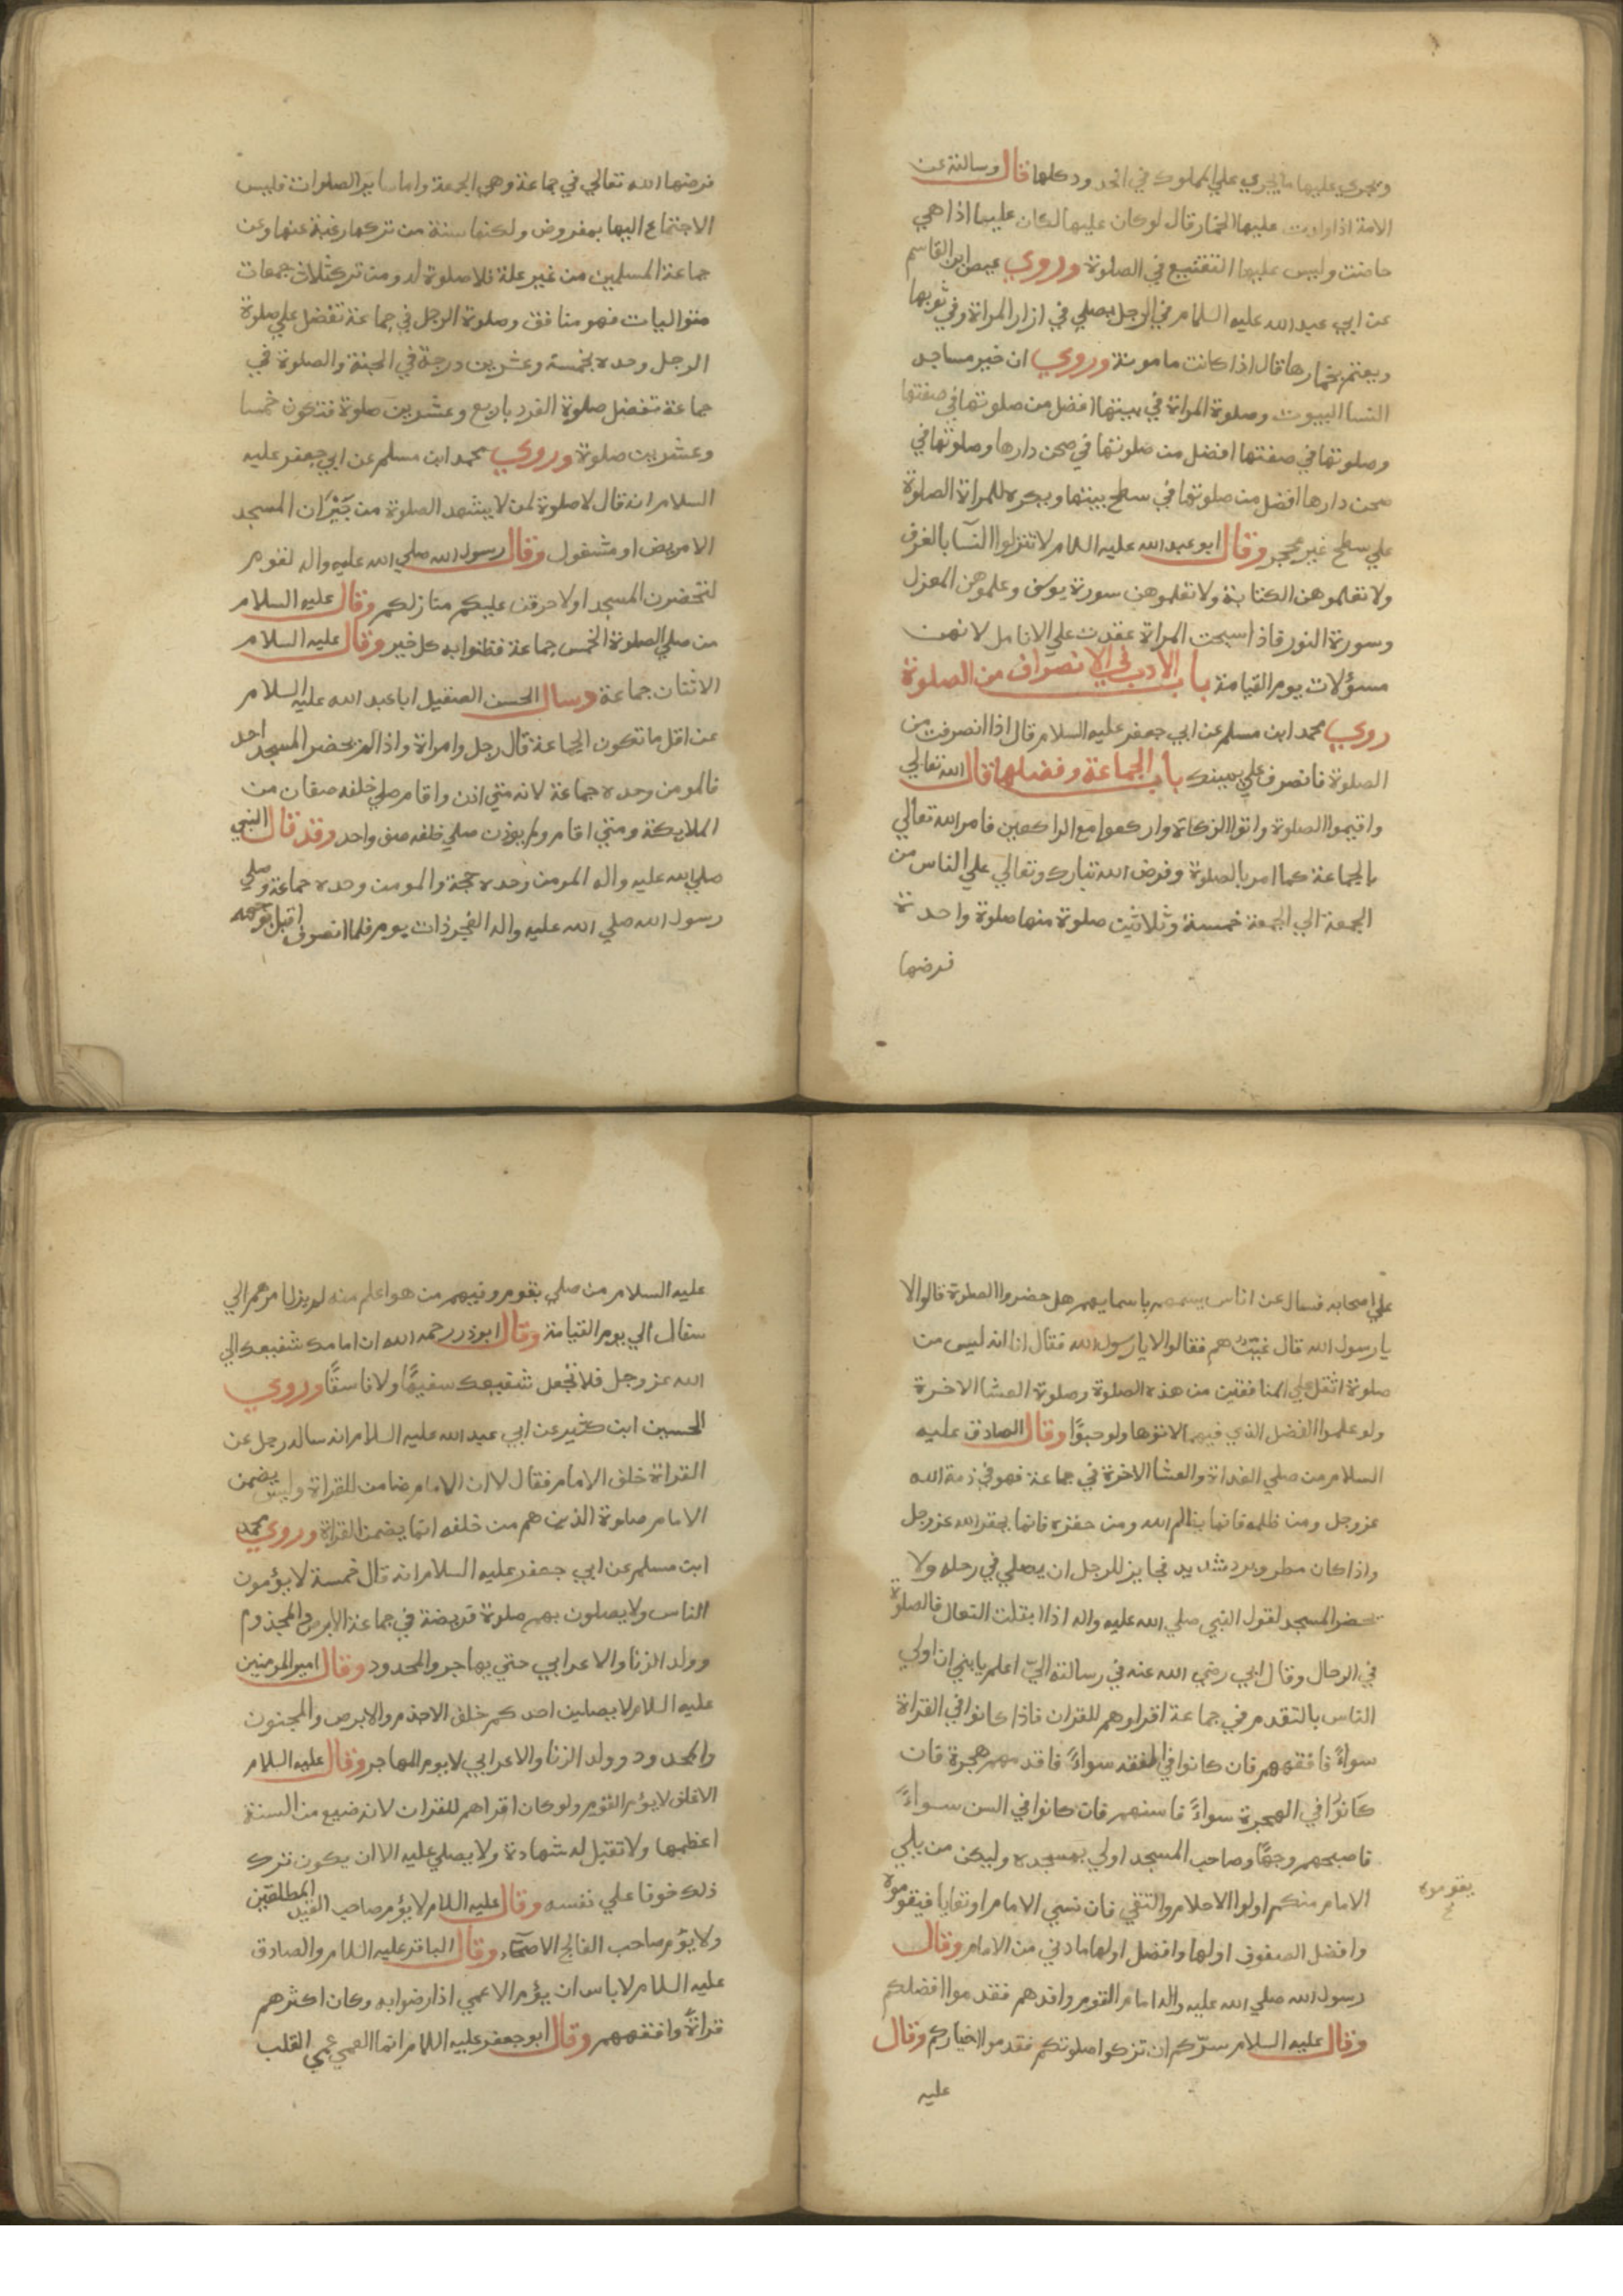 ويجري عليها ما يجري علي المملوك في الحدود كلها قال وسالته عن
الامة اذا ولدت عليها الخمار قال لوكان عليها لكان عليها اذا هي
حاضت وليس عليها التقنيع في الصلوة وروي عيص ابن القاسم
عن ابي عبد الله عليه السلام في الرجل يصلي في ازار المراة وفي ثوبها
ويعتم بخمارها قال اذا كانت مامونة وروي ان خير مساجد
النسا البيوت وصلوة المراة في بيتها افضل من صلوتها في صفتها
وصلوتها في صفتها افضل من صلوتها في صحن دارها وصلوتها في
صحن دارها افضل من صلوتها في سطح بيتها ويكره للمراة الصلوة
علي سطح غير محجر وقال ابو عبد الله عليه السلام لا تنزلوا النسآ بالغرف
ولا تعلموهن الكتابة ولا تعلموهن سورة يوسف وعلموهن المغزل
وسورة النور فاذا سبحت المراة عقدت علي الانامل لانهن
مسؤلات يوم القيامة باب الادب في الانصراف من الصلوة
روي محمد ابن مسلم عن ابي جعفر عليه السلام قال اذا انصرفت من
الصلوة فانصرف علي يمينك باب الجماعة وفضلها قال الله تعالي
واقيموا الصلوة واتوا الزكاة واركعوا مع الراكعين فامر الله تعالي
بالجماعة كما امر بالصلوة وفرض الله تبارك وتعالي علي الناس من
الجمعة الي الجمعة خمسة وثلاثين صلوة منها صلوة واحدة
فرضها
فرضها الله تعالي في جماعة وهي الجمعة واما ساير الصلوات فليس
الاجتماع اليها بمفروض ولكنها سنة من تركها رغبة عنها وعن
جماعة المسلمين من غير علة فلا صلوة له ومن ترك ثلاث جمعات
متواليات فهو منافق وصلوة الرجل في جماعة تفضل علي صلوة
الرجل وحده بخمسة وعشرين درجة في الجنة والصلوة في
جماعة تفضل صلوة الفرد باربع وعشرين صلوة فتكون خمسا
وعشرين صلوة وروي محمد ابن مسلم عن ابي جعفر عليه
السلام انه قال لا صلوة لمن لا يشهد الصلوة من جيران المسجد
الا مريض او مشغول وقال رسول الله صلي الله عليه واله لقوم
لتحضرن المسجد او لاحرقن عليكم منازلكم وقال عليه السلام
من صلي الصلوة الخمس جماعة فظنوا به كل خير وقال عليه السلام
الاثنان جماعة وسال الحسن الصيقل ابا عبد الله عليه السلام
عن اقل ما تكون الجماعة قال رجل وامراة واذا لم يحضر المسجد احد
فالمومن وحده جماعة لانه متي اذن واقام صلي خلفه صفان من
الملايكة ومتي اقام ولم يوذن صلي خلفه صف واحد وقد قال النبي
صلي الله عليه واله المومن وحده حجة والمومن وحده جماعة وصلي
رسول الله صلي الله عليه واله الفجر ذات يوم فلما انصرف اقبل بوجهه
علي اصحابه فسال عن اناس يسميهم باسمايهم هل حضروا الصلوة قالوا لا
يا رسول الله قال غيّبٌ هم فقالوا لا يا رسول الله فقال اما انه ليس من
صلوة اثقل علي المنافقين من هذه الصلوة وصلوة العشا الاخرة
ولو علموا الفضل الذي فيهما لاتوها ولو حبوًا وقال الصادق عليه
السلام من صلي الغداة والعشا الاخرة في جماعة فهو في ذمة الله
عزوجل ومن ظلمه فانما يظلم الله ومن حقره فانما يحقر الله عزوجل
واذا كان مطر وبرد شديد فجايز للرجل ان يصلي في رحله ولا
يحضر المسجد لقول النبي صلي الله عليه واله اذا ابتلت النعال فالصلوة
في الرحال وقال ابي رضي الله عنه في رسالته اليّ اعلم يا بني ان اولي
الناس بالتقدم في جماعة اقراوهم للقران فاذا كانوا في القراة
سواءً فافقههم فان كانوا في الفقه سواءً فاقدمهم هجرة فان
كانوا في الهجرة سواءً فاسنهم فان كانوا في السن سواءً
فاصبحهم وجهًا وصاحب المسجد اولي بمسجده وليكن من يلي
الامام منكم اولوا الاحلام والتقي فان نسي الامام او تعايا فيقوموه
يقوموه
وافضل الصفوف اولها وافضل اولها ما دني من الامام وقال
رسول الله صلي الله عليه واله امام القوم وافدهم فقدموا افضلكم
وقال عليه السلام سرّكم ان تزكوا صلوتكم فقدموا خياركم وقال
عليه
عليه السلام من صلي بقوم وفيهم من هو اعلم منه لم يزل امرهم الي
سفال الي يوم القيامة وقال ابوذر رحمه الله ان امامك شفيعك الي
الله عزوجل فلا تجعل شفيعك سفيهًا ولا فاسقًا وروي
الحسين ابن كثير عن ابي عبد الله عليه السلام انه ساله رجل عن
القراة خلف الامام فقال لا ان الامام ضامن للقراة وليس يضمن
الامام صلوة الذين هم من خلفه انما يضمن القراة وروي محمد
ابن مسلم عن ابي جعفر عليه السلام انه قال خمسة لا يؤمون
الناس ولا يصلون بهم صلوة فريضة في جماعة الابرص والمجذوم
وولد الزنا والاعرابي حتي يهاجر والمحدود وقال امير المومنين
عليه السلام لا يصلين احدكم خلف الاجذم والابرص والمجنون
والمحدود وولد الزنا والاعرابي لا يوم المهاجر وقال عليه السلام
الاغلف لا يؤم القوم ولو كان اقراهم للقران لانه ضيع من السنة
اعظمها ولا تقبل له شهادة ولا يصلي عليه الا ان يكون ترك
ذلك خوفا علي نفسه وقال عليه السلام لا يؤم صاحب القيد المطلقين
ولا يؤم صاحب الفالج الاصحّاء وقال الباقر عليه السلام والصادق
عليه السلام لا باس ان يؤم الاعمي اذا رضوا به وكان اكثرهم
قراةً وافقههم وقال ابو جعفر عليه السلام انما العمي عمي القلب